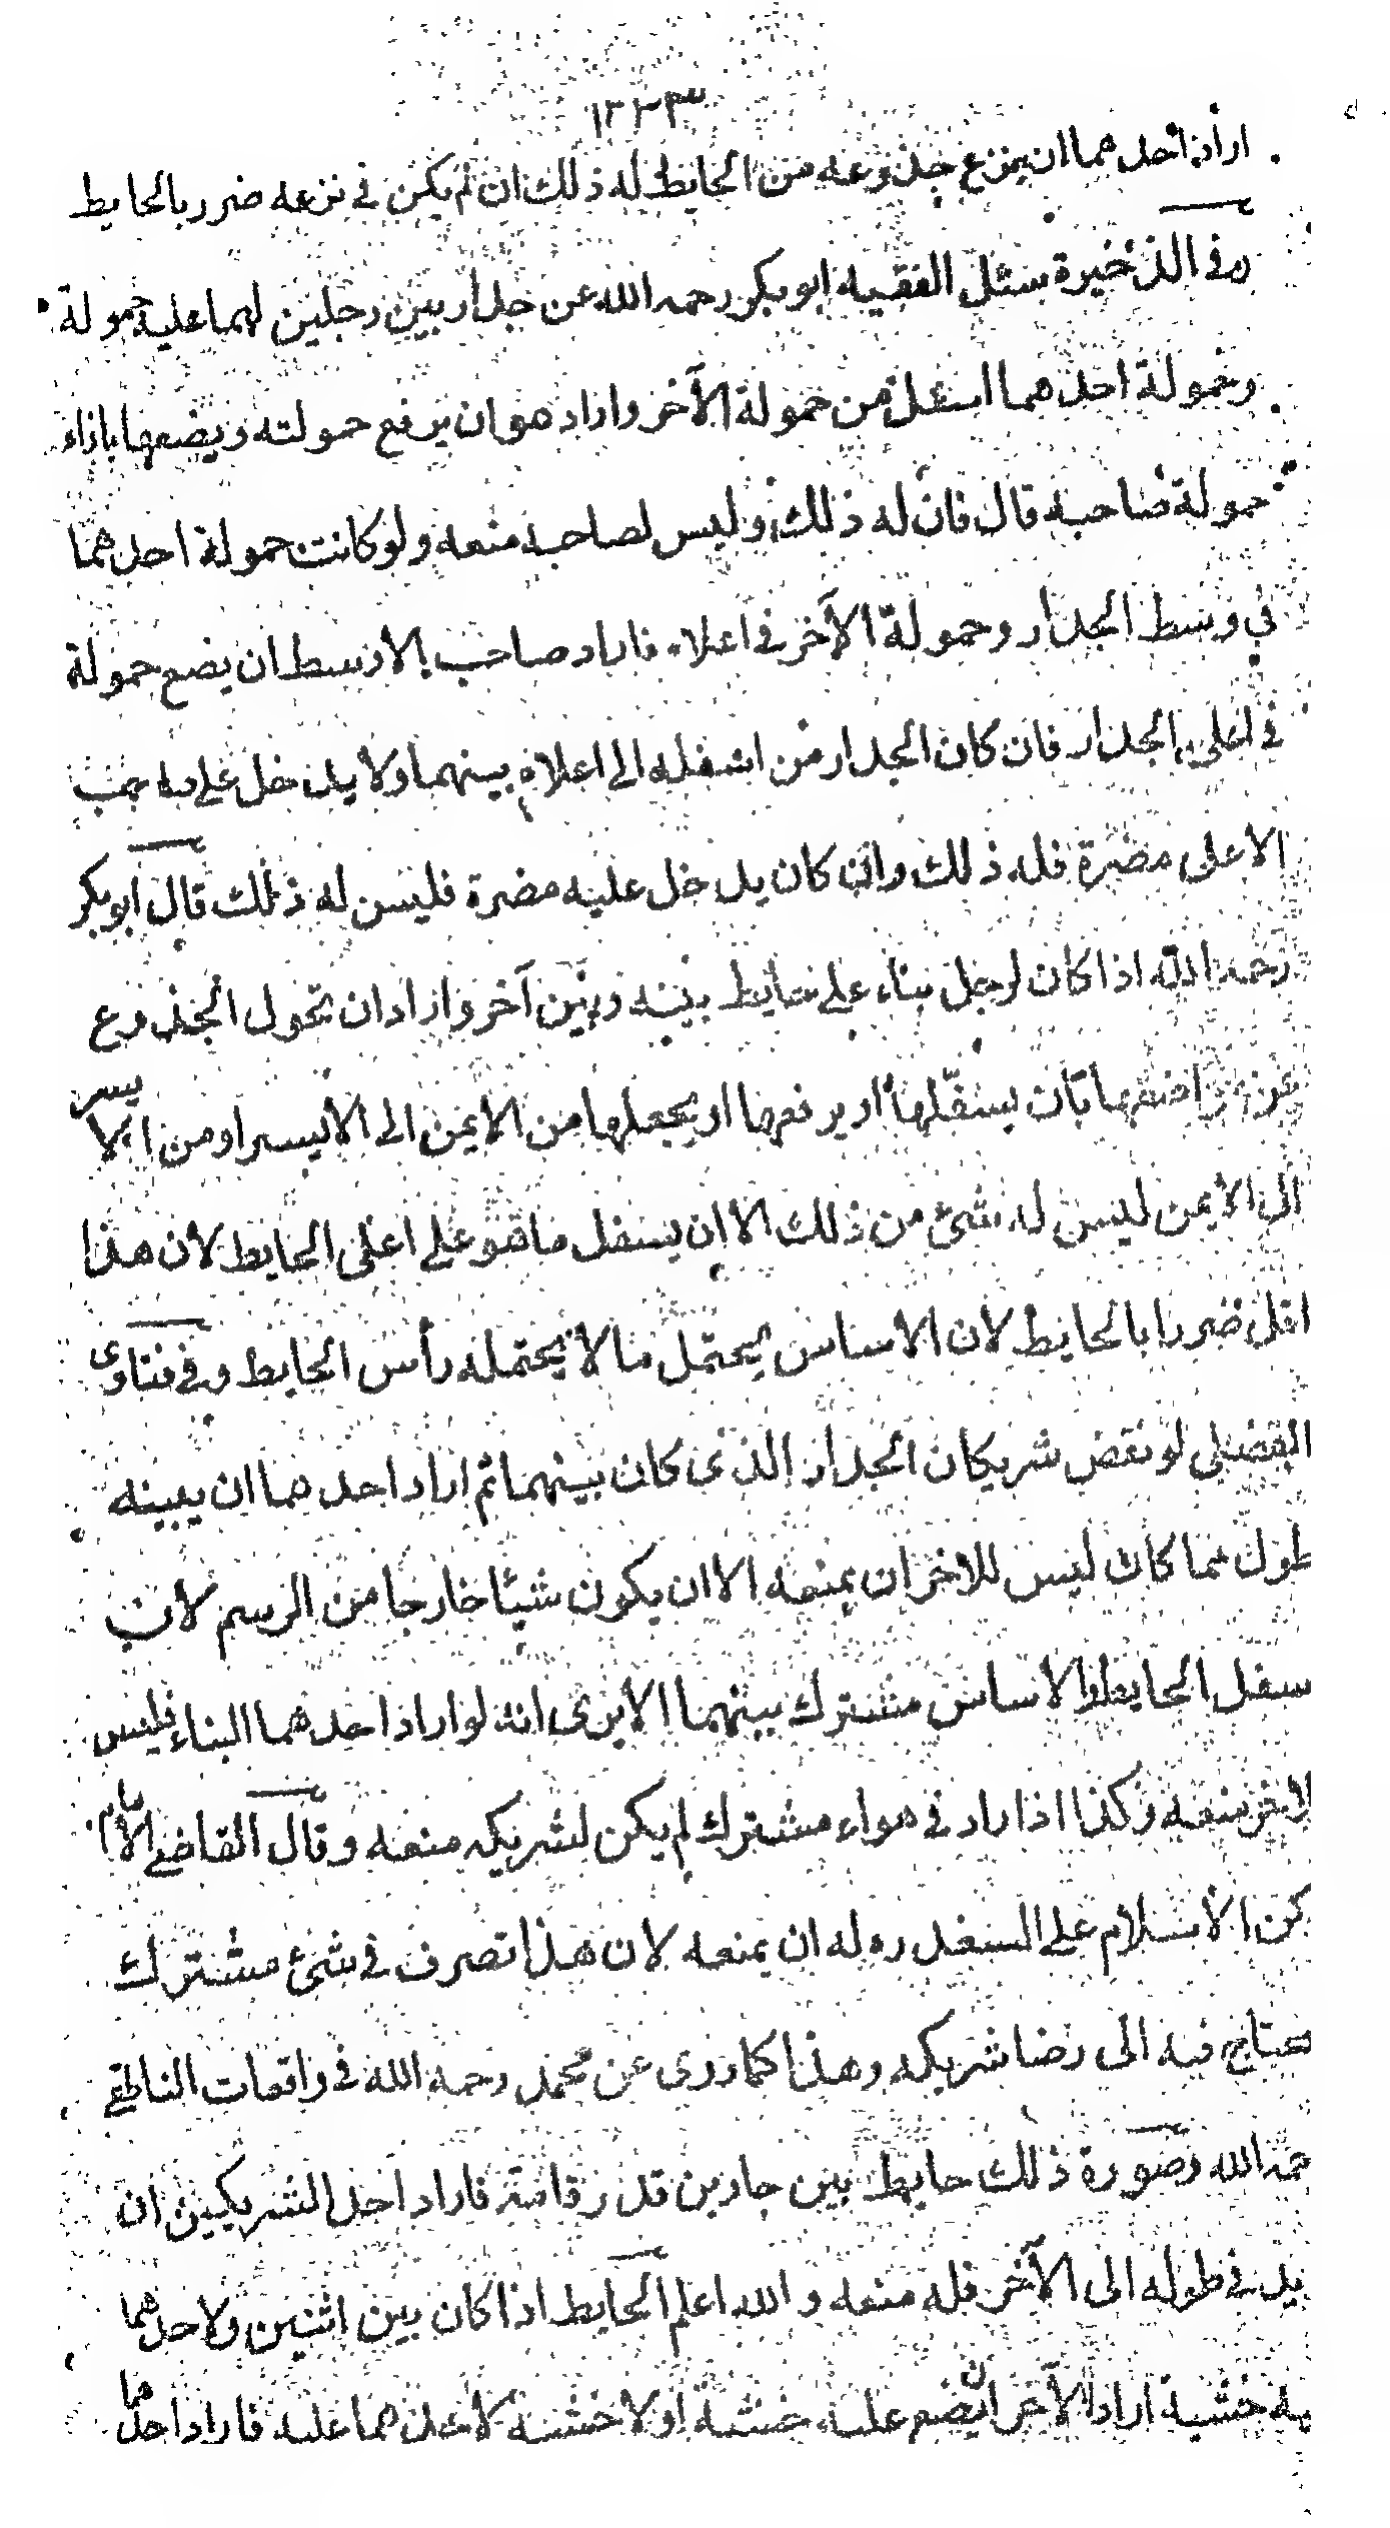 ١٣٢٣
اراد احدهما ان ينزع جذوعه من الحايط له ذلك ان لم يكن في نزعه ضرر بالحايط
وفي الذخيرة سئل الفقيه ابو بكر رحمه الله عن جدار بين رجلين لهما عليه حمولة
وحمولة احدهما اسفل من حمولة الآخر واراد هو ان يرفع حمولته ويضعها بازاء
حمولة صاحبه قال فان له ذلك وليس لصاحبه منعه ولو كانت حمولة احدهما
في وسط الجدار وحمولة الآخر في اعلاه فاراد صاحب الاوسط ان يضع حمولة
في اعلى الجدار فان كان الجدار من اسفله الى اعلاه بينهما ولا يدخل على
الاعلى مضرة فله ذلك وان كان يدخل عليه مضرة فليس له ذلك قال ابو بكر
رحمه الله اذا كان لرجل بناء على حايط بينه وبين آخر واراد ان تحول الجذوع
عن مواضعها بان يسفلها او يرفعها او يجعلها من الايمن الى الايسر او من الايسر
الى الايمن ليس له شئ من ذلك الا ان يسفل ما هو على اعلى الحايط لان هذا
اقل ضررا بالحايط لان الاساس يحتمل ما لا يحتمله رأس الحايط وفي فتاوى
الفضلي لو نقض شريكان الجدار الذي كان بينهما ثم اراد احدهما ان يبينه
طول مما كان ليس للاخر ان يمنعه الا ان يكون شيئا خارجا من الرسم لان
سفل الحايط والاساس مشترك بينهما الا يرى انه لو اراد احدهما البناء فليس
لاخر منعه وكذا اذا راد في هواء مشترك لم يكن لشريكه منعه وقال القاضي الامام
كن الاسلام علي السغد ر له ان يمنعه لان هذا تصرف في شئ مشترك
حتاج فيه الى رضا شريكه وهذا كما روى عن محمد رحمه الله في واقعات الناطفي
حمه الله وصورة ذلك حايط بين جارين قدر قامة فاراد احد الشريكين ان
يد في طوله الى الآخر فله منعه والله اعلم الحايط اذا كان بين اثنين ولاحدهما
يه خشبة اراد الآخر ان يضع عليه خشبة او لا خشبة لاحدهما عليه فاراد احدهما